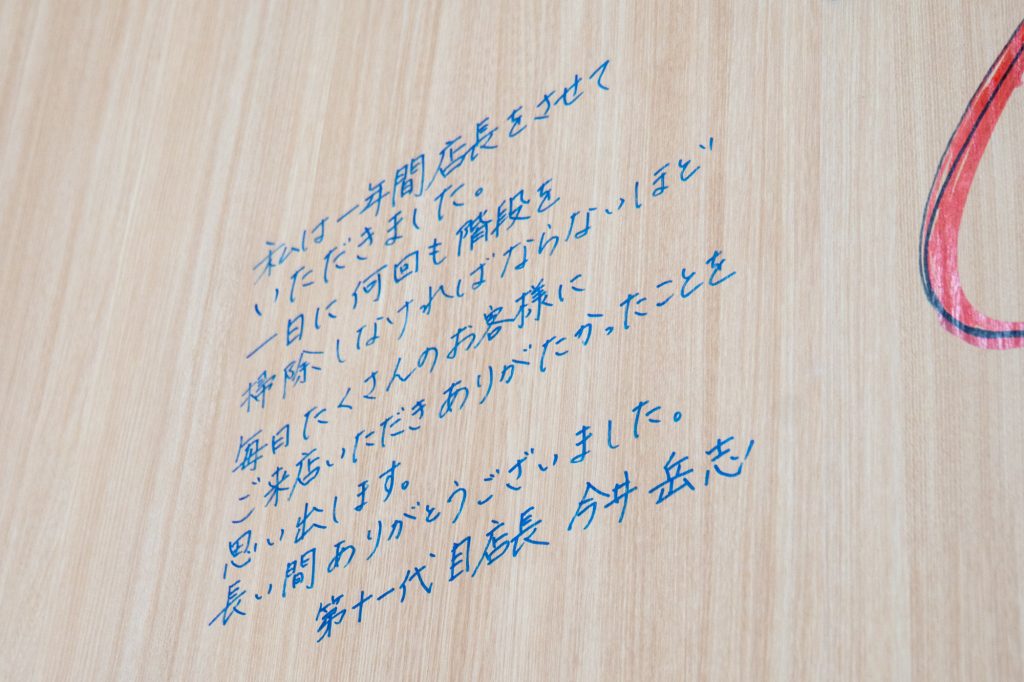 私は一年間店長をさせて
いただきました。
一日に何回も階段を
掃除しなければならないしほど
毎日たくさんのお客様に
ご来店いただきありがたかったことを
思い出します。
長い間ありがとうございました。
第十一代目店長 今井 岳志